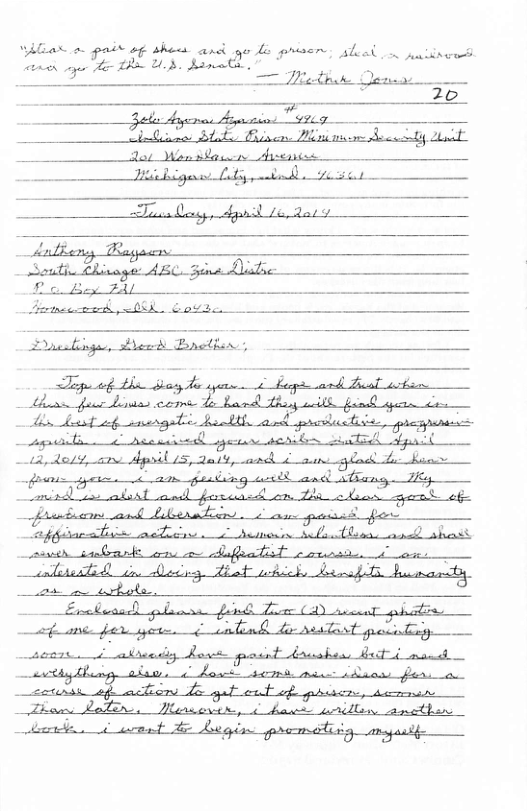 "Steal a pair of shoes and go to prison; steal a railroad
and go to the U.S. Senate."
— Mother Jones
20
Zolo Agona Azania #4969
Indiana State Prison Minimum Security Unit
201 Woodlawn Avenue
Michigan City, Ind. 46361
Tuesday, April 16, 2014
Anthony Rayson
South Chicago ABC Zine Distro
P.O. Box 721
Homewood, Ill. 60430
Greetings, Good Brother;
Top of the day to you. i hope and trust when
these few lines come to hand they will find you in
the best of energetic health and productive, progressive
spirits. i received your scribe dated April
12, 2014, on April 15, 2014, and i am glad to hear
from you. i am feeling well and strong. My
mind is alert and focused on the clear goal of
freedom and liberation. i am poised for
affirmative action. i remain relentless and shall
never embark on a defeatist course. i am
interested in doing that which benefits humanity
as a whole.
Enclosed please find two (2) recent photos
of me for you. i intend to restart painting
soon. i already have paint brushes but i need
everything else. i have some new ideas for a
course of action to get out of prison, sooner
than later. Moreover, i have written another
book. i want to begin promoting myself